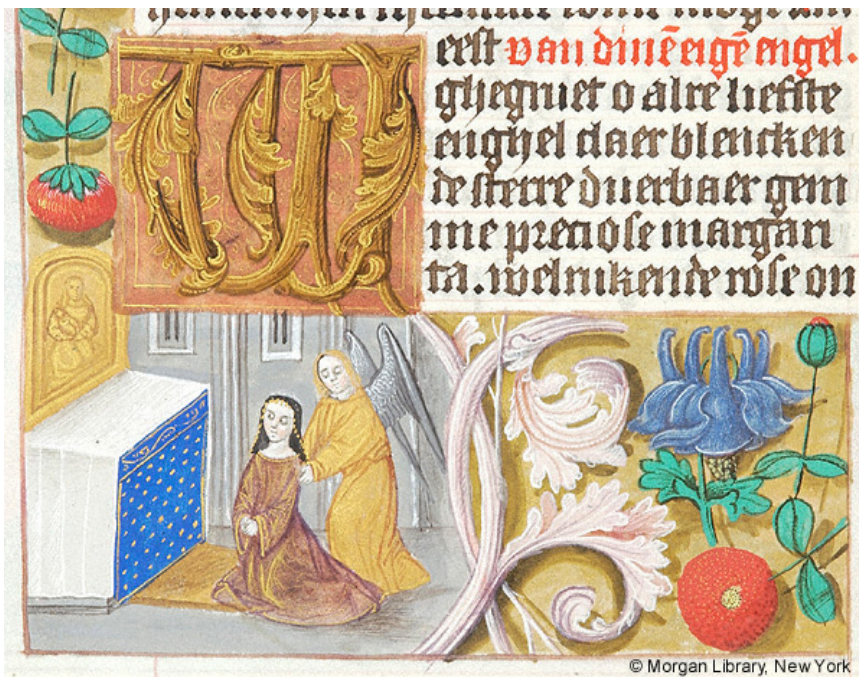 Weest van dinē eigē engel.
ghegruet o alre liefste
enghel claer blencken
de sterre duerbaer gem
me preciose margari
ta. welrukende rose on
© Morgan Library, New York